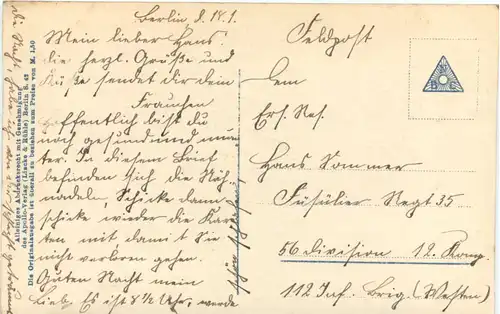 Berlin d. 18.1.
Mein lieber Hans.
die herzl. Grüße und
Küße sendet dir dein
Frauchen
hoffentlich bist du
noch gesund und mun-
ter. In diesem Brief
befinden sich die Näh-
nadeln, Schicke dann
schicke wieder die Kar-
ten mit damit Sie
nicht verloren gehen.
Guten Nacht mein
Lieb. Es ist 8½ Uhr, werde
Feldpost
Dem
Ers. Res.
Hans Sommer
Füsilier Regt 35
56 division 12. Komp.
112 Inf. Brig. (Westen)
Alleiniger Abdrucksrecht mit Genehmigung
des Apollo-Verlag (Liesbe & Rühle) Berlin S. 42
Die Originalausgabe ist überall zu beziehen zum Preise von M. 1,50